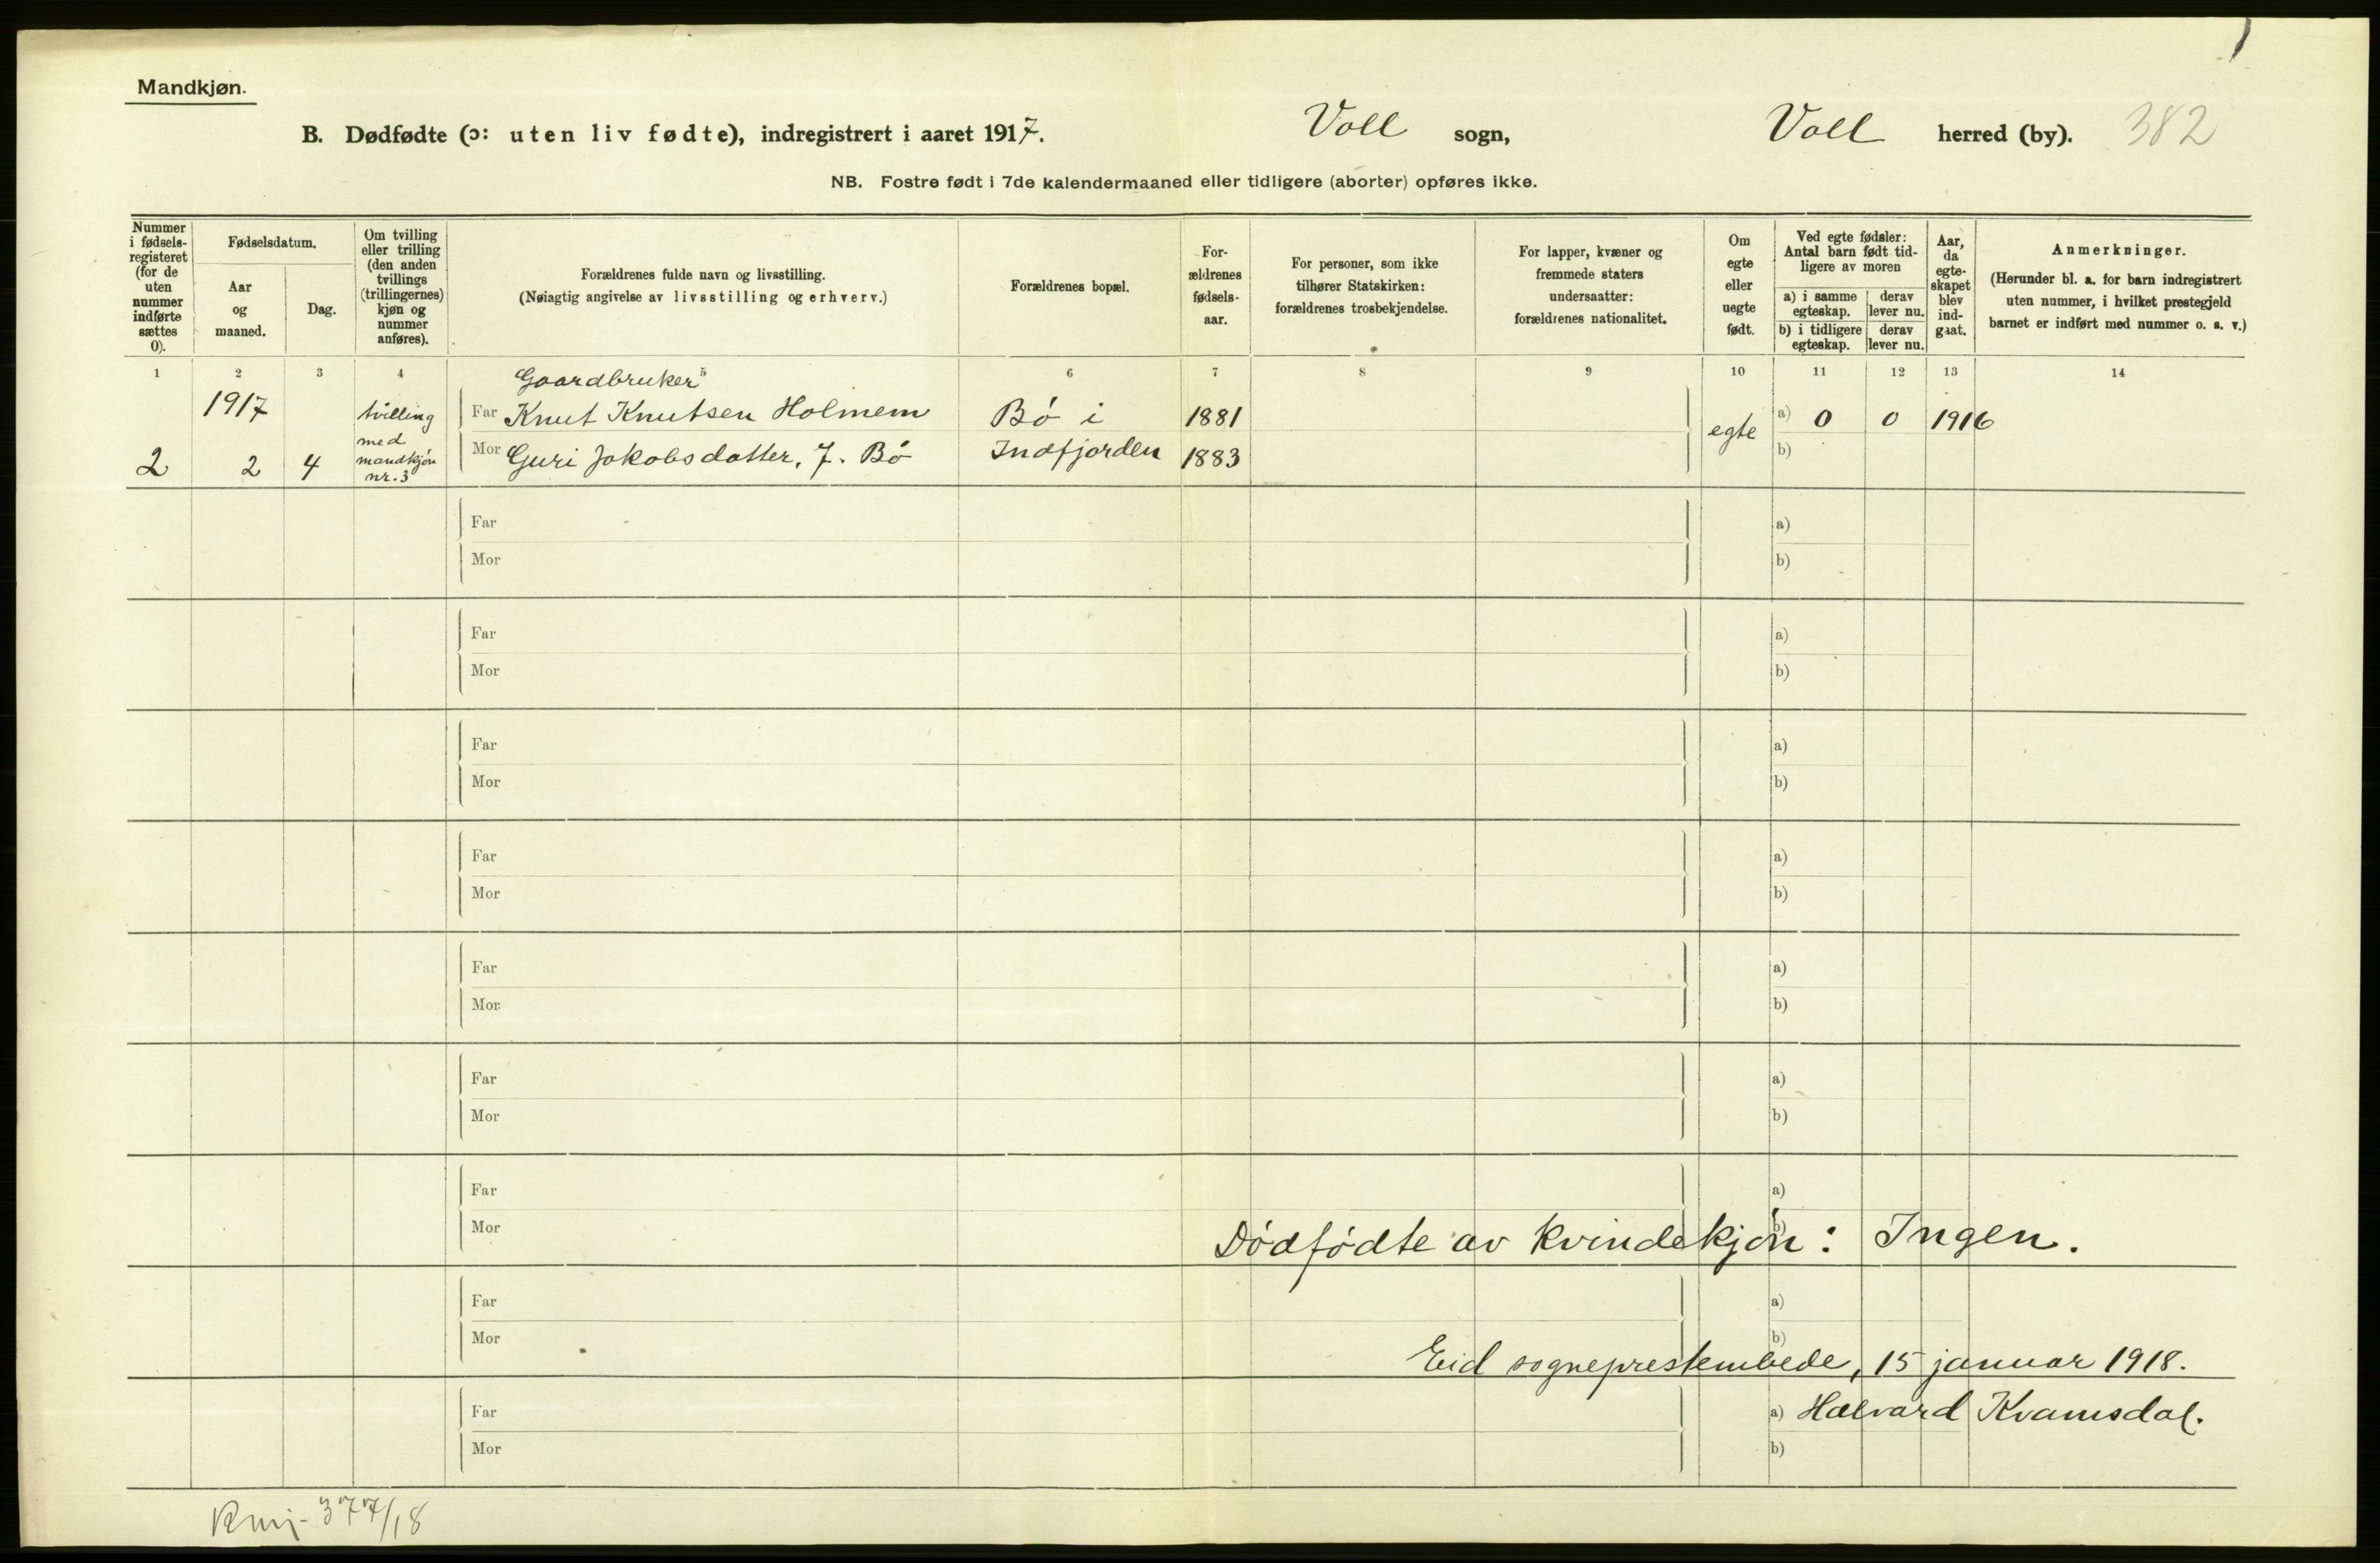 Mandkjøn.
B. Dødfødte (ɔ: uten liv fødte), indregistrert i aaret 1917. Voll sogn, Voll herred (by). 382
NB. Fostre født i 7de kalendermaaned eller tidligere (aborter) opføres ikke.
Nummer i fødsels-registeret (for de uten nummer indførte sættes 0).
Fødselsdatum.
Aar og maaned.
Dag.
Om tvilling eller trilling (den anden tvillings (trillingernes) kjøn og nummer anføres).
Forældrenes fulde navn og livsstilling.
(Nøiagtig angivelse av livsstilling og erhverv.)
Forældrenes bopæl.
For-ældrenes fødsels-aar.
For personer, som ikke tilhører Statskirken: forældrenes trosbekjendelse.
For lapper, kvæner og fremmede staters undersaatter: forældrenes nationalitet.
Om egte eller uegte født.
Ved egte fødsler: Antal barn født tid-ligere av moren
a) i samme egteskap.
derav lever nu.
b) i tidligere egteskap.
derav lever nu.
Aar, da egte-skapet blev ind-gaat.
Anmerkninger.
(Herunder bl. a. for barn indregistrert uten nummer, i hvilket prestegjeld barnet er indført med nummer o. s. v.)
1 2 3 4 5 6 7 8 9 10 11 12 13 14
Gaardbruker
1917 tvilling Far Knut Knutsen Holmem Bø i 1881 egte a) 0 0 1916
med
2 2 4 mandkjøn Mor Guri Jakobsdatter, f. Bø Indfjorden 1883 b)
nr. 3
Far a)
Mor b)
Far a)
Mor b)
Far a)
Mor b)
Far a)
Mor b)
Far a)
Mor b)
Far a)
Mor b)
Far a)
Mor b)
Dødfødte av kvindekjøn: Ingen.
Far a)
Mor b)
Eid sogneprestembede, 15 januar 1918.
Far a) Halvard Kvamsdal.
Mor b)
377/18